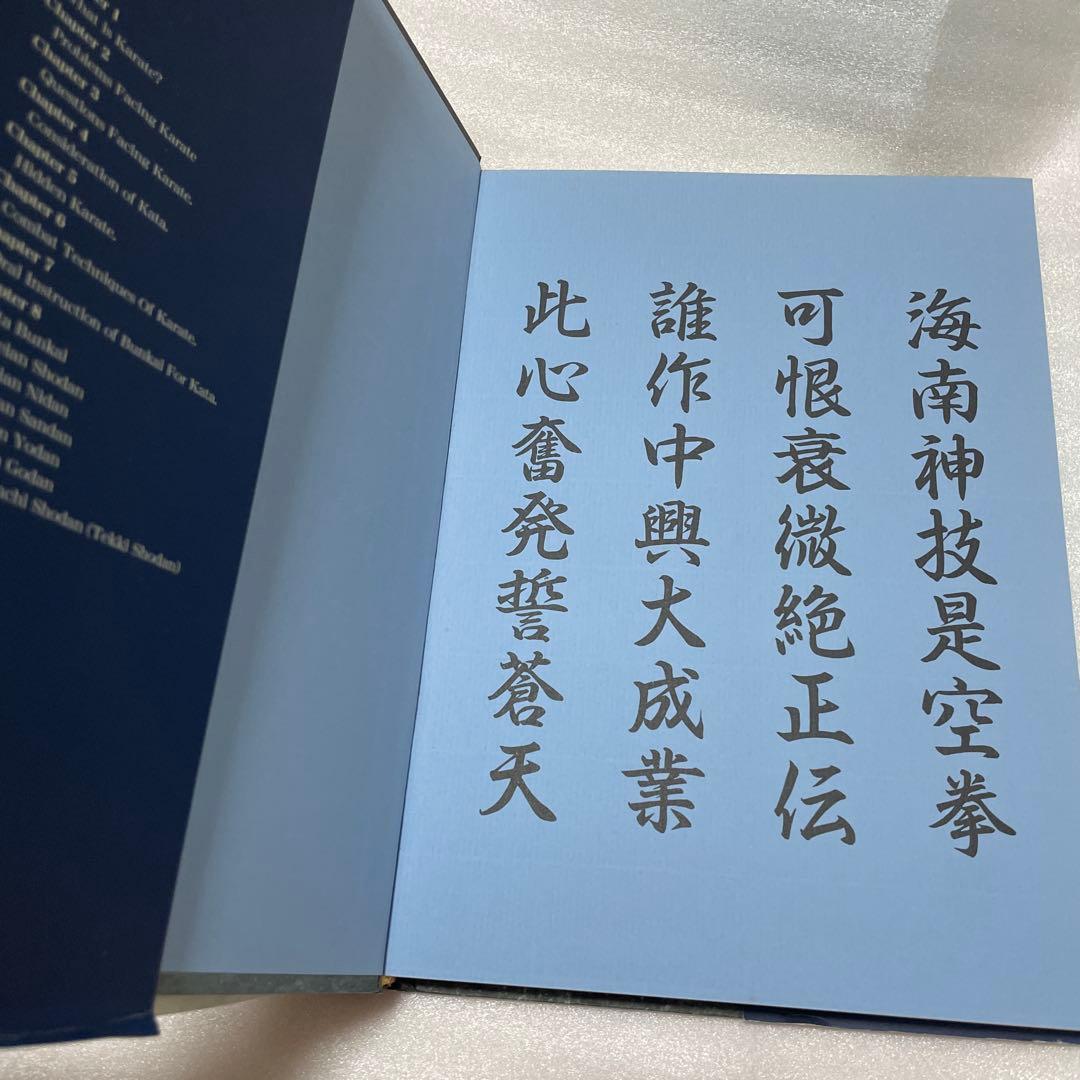 Chapter 2
Problems Facing Karate
Chapter 3
Questions Facing Karate.
Chapter 4
Consideration of Kata.
Chapter 5
Hidden Karate.
Chapter 6
Combat Techniques Of Karate.
Instruction of Bunkai For Kata.
Bunkai
Shodan
Nidan
Sandan
Yodan
Godan
Shodan (Tekki Shodan)
海南神技是空拳
可恨衰微絶正伝
誰作中興大成業
此心奮発誓蒼天